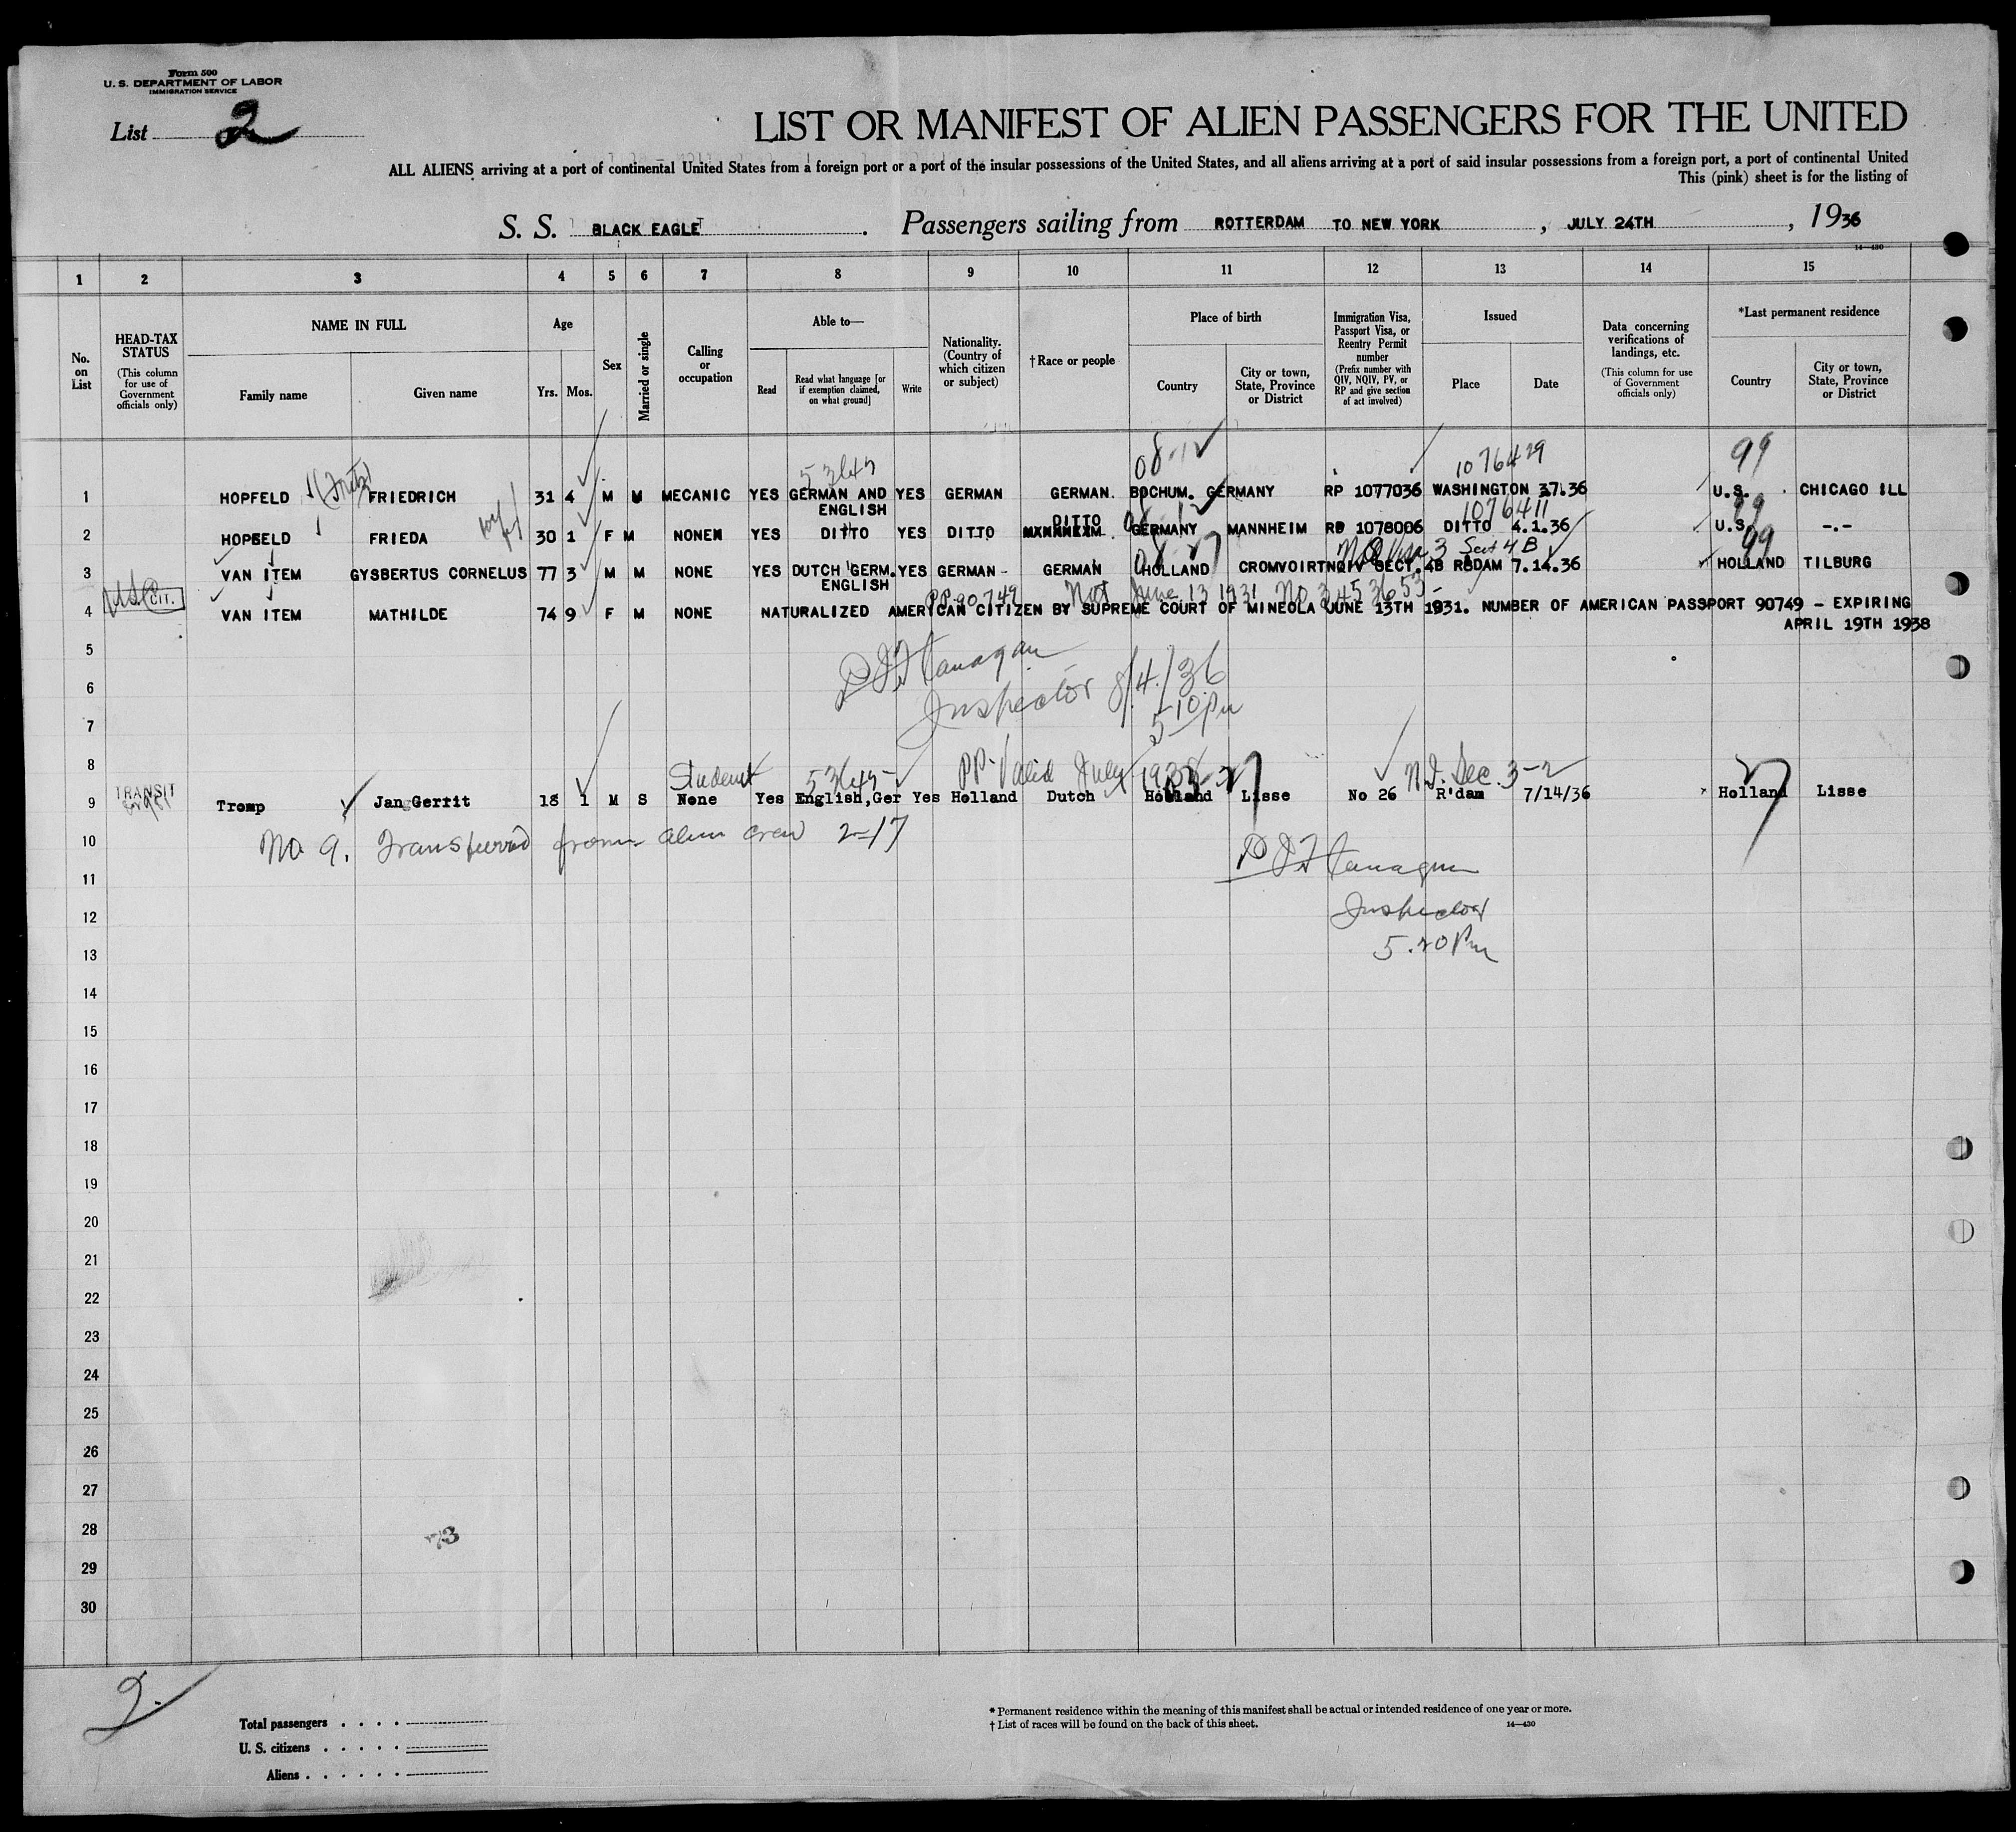 Form 500
U. S. DEPARTMENT OF LABOR
IMMIGRATION SERVICE
List 2
LIST OR MANIFEST OF ALIEN PASSENGERS FOR THE UNITED
ALL ALIENS arriving at a port of continental United States from a foreign port or a port of the insular possessions of the United States, and all aliens arriving at a port of said insular possessions from a foreign port, a port of continental United
This (pink) sheet is for the listing of
S. S. BLACK EAGLE . Passengers sailing from ROTTERDAM TO NEW YORK , JULY 24TH , 1936
14—430
1 2 3 4 5 6 7 8 9 10 11 12 13 14 15
No. on List
HEAD-TAX STATUS
(This column for use of Government officials only)
NAME IN FULL
Family name
Given name
Age
Yrs.
Mos.
Sex
Married or single
Calling or occupation
Able to—
Read
Read what language [or if exemption claimed, on what ground]
Write
Nationality. (Country of which citizen or subject)
†Race or people
Place of birth
Country
City or town, State, Province or District
Immigration Visa, Passport Visa, or Reentry Permit number
(Prefix number with QIV, NQIV, PV, or RP and give section of act involved)
Issued
Place
Date
Data concerning verifications of landings, etc.
(This column for use of Government officials only)
*Last permanent residence
Country
City or town, State, Province or District
53647 08-12 1076429 99
1 HOPFELD (Fritz) FRIEDRICH 31 4 M M MECANIC YES GERMAN AND YES GERMAN GERMAN. BOCHUM. GERMANY RP 1077036 WASHINGTON 37.36 U.S. CHICAGO ILL
ENGLISH
DITTO 1076411 99
2 HOPFELD FRIEDA wf 30 1 F M NONE YES DITTO YES DITTO GERMANY MANNHEIM RP 1078006 DITTO 4.1.36 U.S. -.-
Sect 4 B 99
3 VAN ITEM GYSBERTUS CORNELUS 77 3 M M NONE YES DUTCH GERM. YES GERMAN GERMAN HOLLAND CROMVOIRT NQIV SECT.4B RSDAM 7.14.36 HOLLAND TILBURG
ENGLISH
U.S. CIT. PP. 90749 Nat June 13 1931 No 3453653
4 VAN ITEM MATHILDE 74 9 F M NONE NATURALIZED AMERICAN CITIZEN BY SUPREME COURT OF MINEOLA JUNE 13TH 1931. NUMBER OF AMERICAN PASSPORT 90749 - EXPIRING
APRIL 19TH 1938
5
6
Inspector 8/4/36
7
5 10 Pm
8
Student 53647 PP. Valid July 1938 N.I. Sec. 3-2
TRANSIT
9 Tromp Jan Gerrit 18 1 M S None Yes English,Ger Yes Holland Dutch Holland Lisse No 26 R'dam 7/14/36 Holland Lisse
10 No 9. Transferred from alien crew 2-17
11
12
Inspector
13
5.20 Pm
14
15
16
17
18
19
20
21
22
23
24
25
26
27
28
73
29
30
2.
Total passengers
U. S. citizens
Aliens
* Permanent residence within the meaning of this manifest shall be actual or intended residence of one year or more.
† List of races will be found on the back of this sheet.
14—430